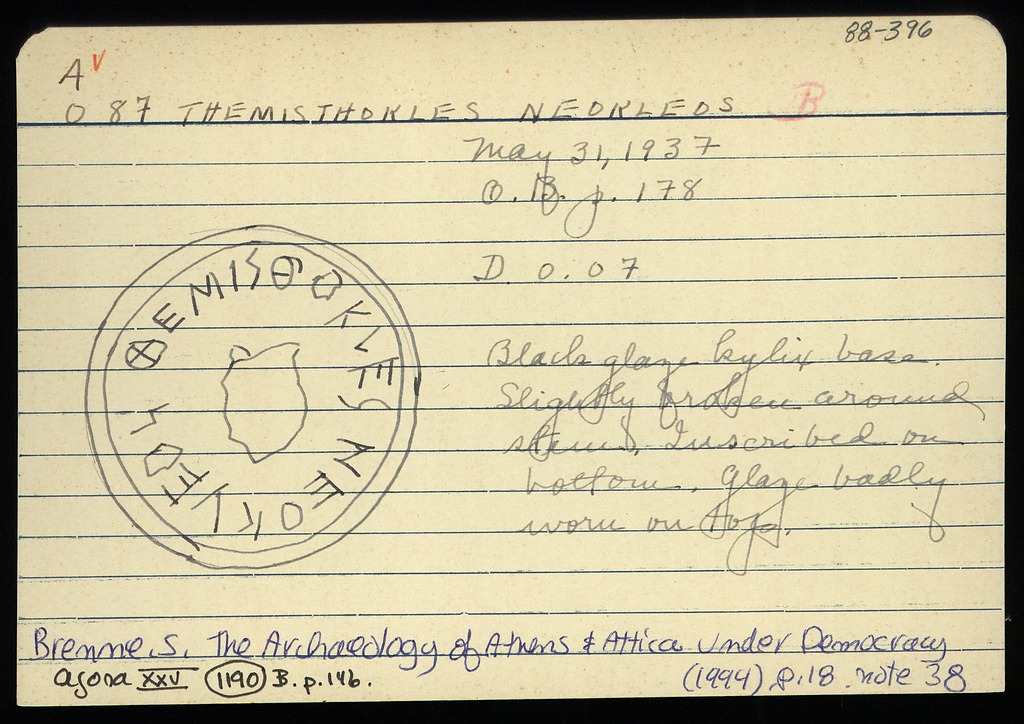 88-396
A V
O 87 THEMISTHOKLES NEOKLEOS B
May 31, 1937
O.B. p. 178
D. 0.07
ΘEMISΘOKLES NEOKLEOS
Black glaze kylix base.
Slightly broken around
stem. Inscribed on
bottom. Glaze badly
worn on top.
Bremme, S. The Archaeology of Athens & Attica under Democracy
(1994) p.18 note 38
agora XXV 1190 B. p. 146.